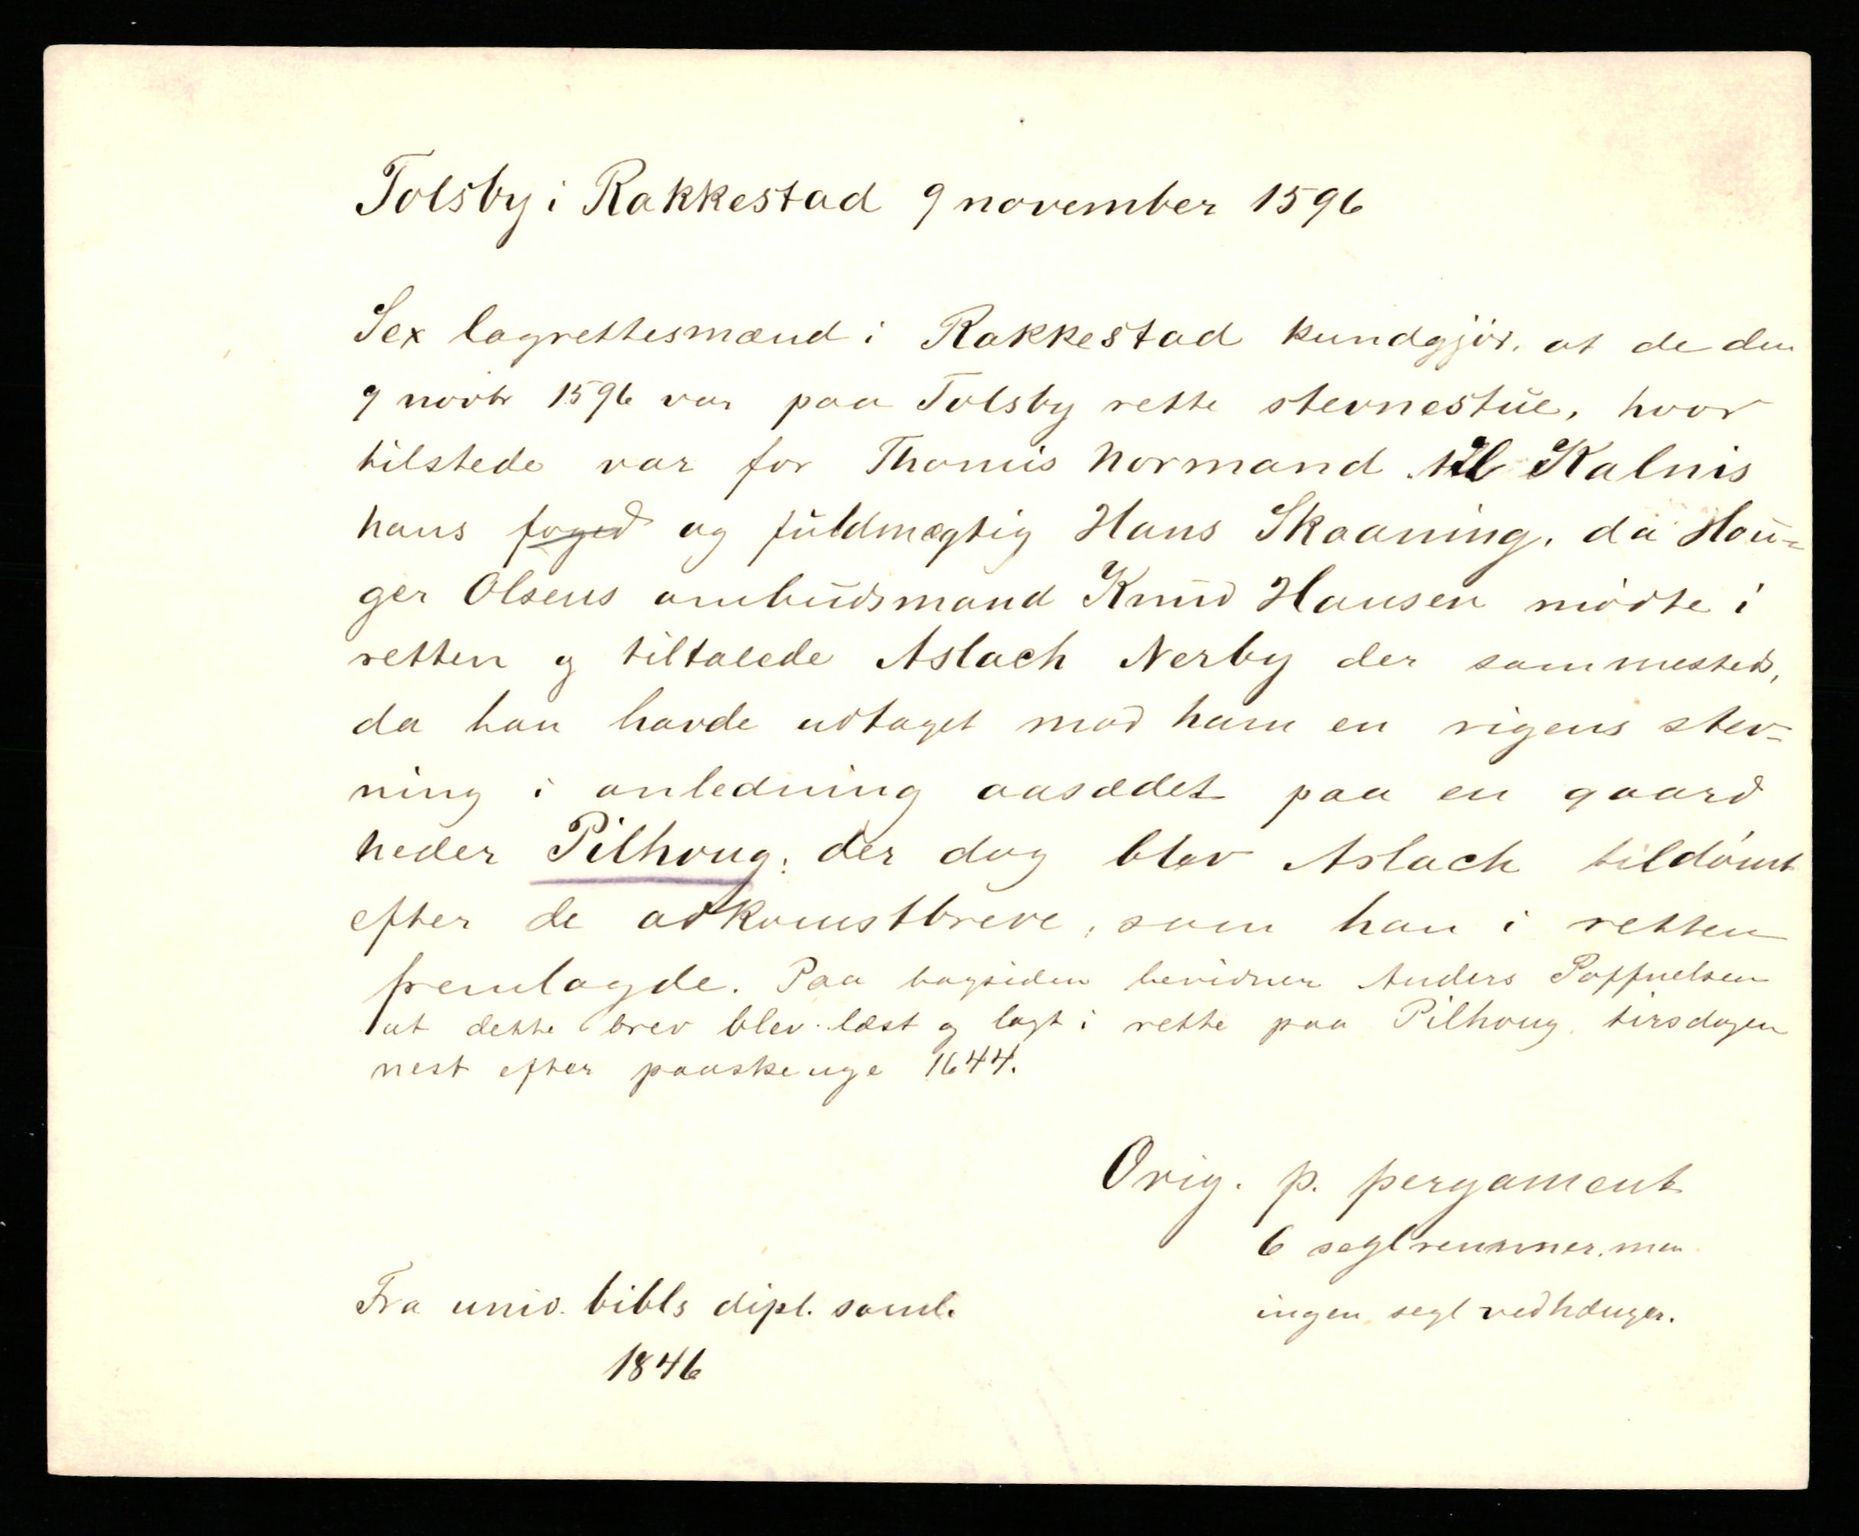 Tolsby i Rakkestad 9 november 1596
Sex lagrettesmænd i Rakkestad kundgjør, at de den
9 novbr 1596 var paa Tolsby rette stevnestue, hvor
tilstede var for Thomis Normand til Kalnis
hans foged og fuldmægtig Hans Skaaning, da Hou-
ger Olsens ombudsmand Knud Hansen mødte i
retten og tiltalede Aslach Nerby der sammesteds,
da han havde udtaget mod ham en rigens stev-
ning i anledning aasædet paa en gaard
heder Pilhoug; der dog blev Aslach tildømt
efter de adkomstbreve, som han i retten
fremlagde. Paa bagsiden bevidner Anders Poffuelsen
at dette brev blev læst og lagt i rette paa Pilhoug tirsdagen
nest efter paaske uge 1644.
Orig. p. pergament
6 seglremmer, men
ingen segl vedhænger.
Fra univ. bibls dipl. saml.
1846